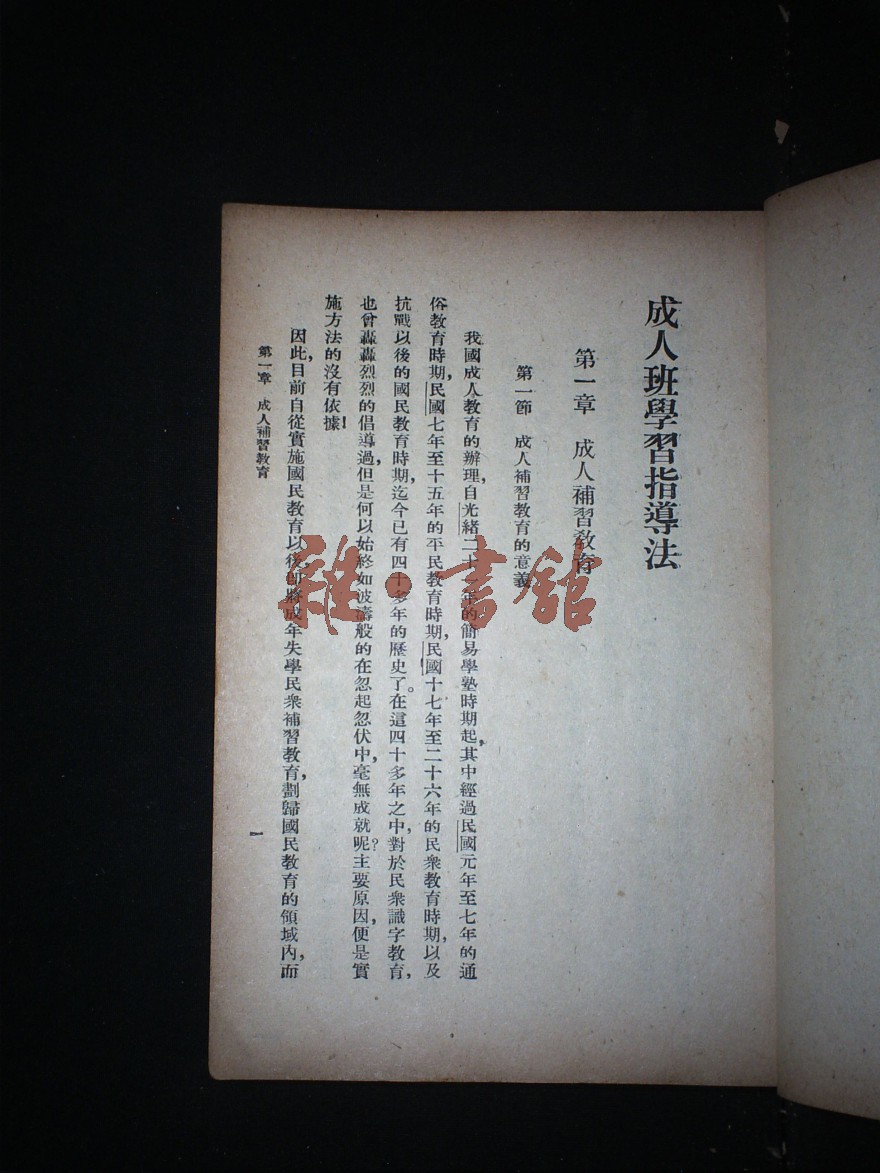 成人班學習指導法
第一章　成人補習教育
第一節　成人補習教育的意義
我國成人教育的辦理，自光緒二十年的簡易學塾時期起，其中經過民國元年至七年的通
俗教育時期，民國七年至十五年的平民教育時期，民國十七年至二十六年的民衆教育時期，以及
抗戰以後的國民教育時期，迄今已有四十多年的歷史了。在這四十多年之中，對於民衆識字教育，
也曾轟轟烈烈的倡導過，但是何以始終如波濤般的在忽起忽伏中，毫無成就呢？主要原因，便是實
施方法的沒有依據！
因此，目前自從實施國民教育以後，即將成年失學民衆補習教育，劃歸國民教育的領域內，而
第一章　成人補習教育
一
雜·書館